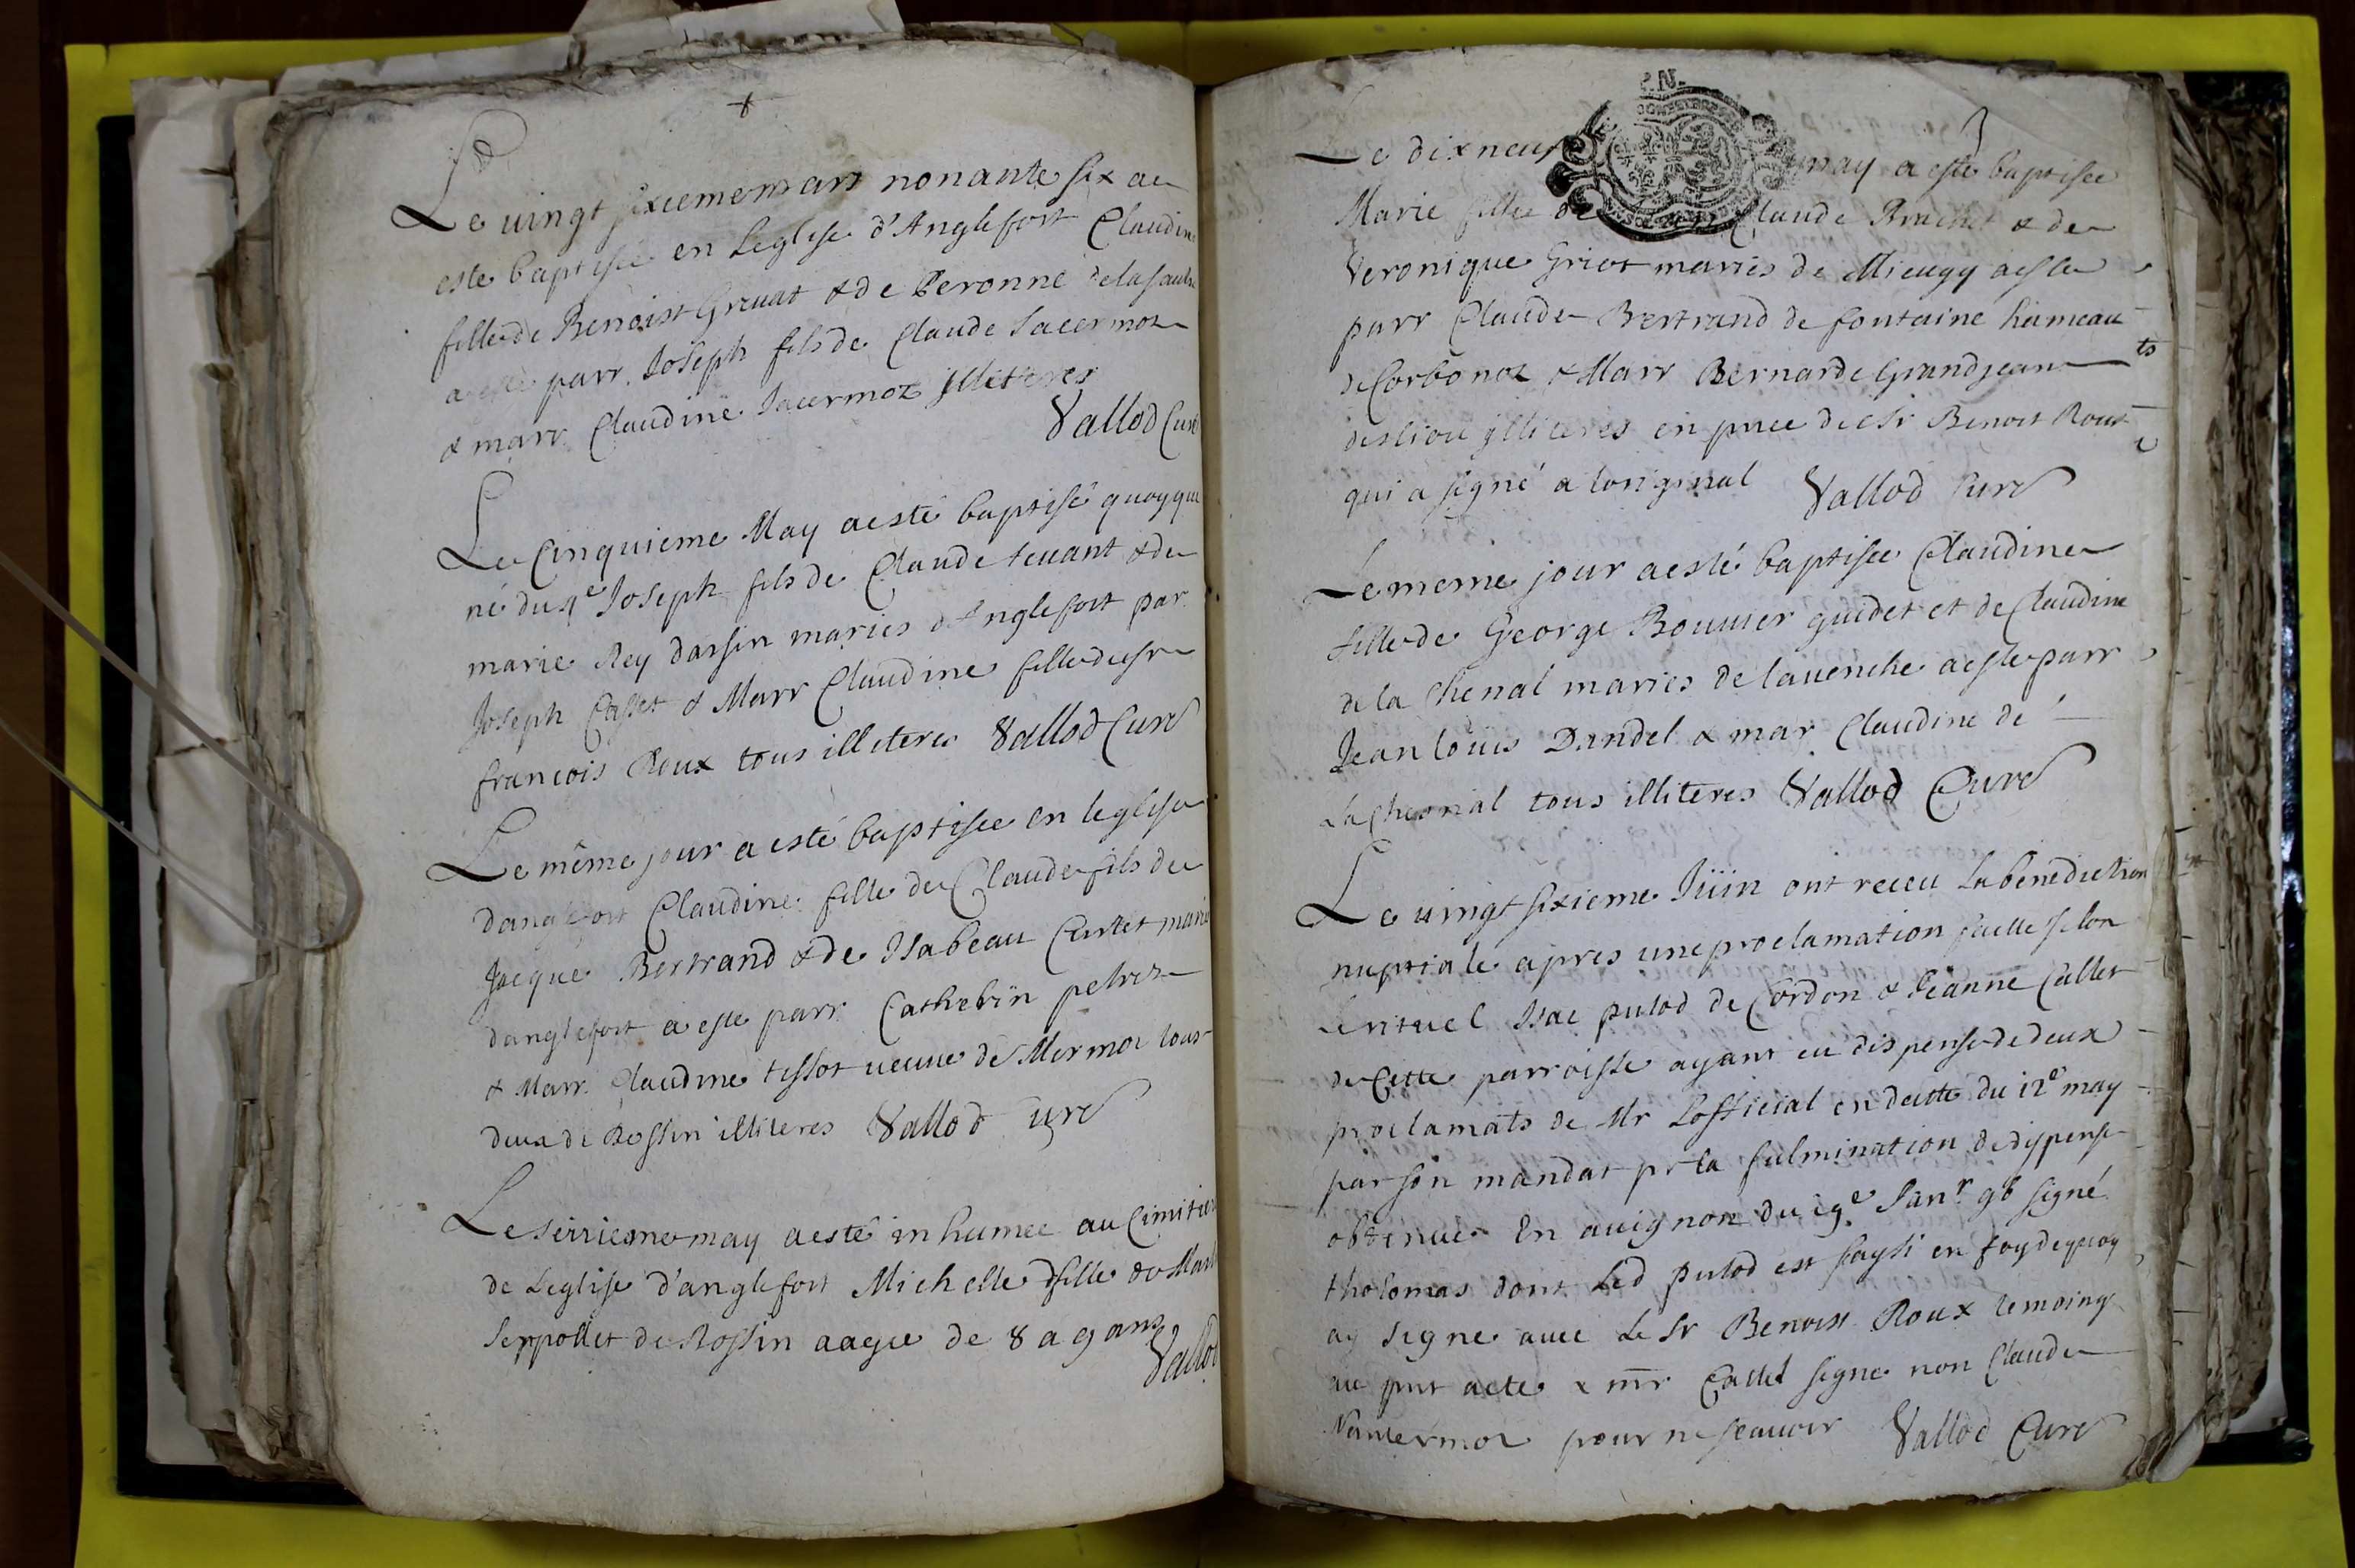 Le uingt sixieme mars nonante six a
este baptisée en Leglise d'Anglefort Claudine
fille de Benoist Gruat & de Peronne delasaulx
a esté parr. Joseph fils de Claude Jacermoz
& marr. Claudine Jacermoz Illiteres
Vallod Curé
Le Cinquieme May a esté baptisé quoyque
né du 4e Joseph fils de Claude teuant & de
marie Rey dassin maries d'Anglefort par
Joseph Casset & Marr Claudine fille du sr
francois Roux tous illiteres Vallod Curé
Le même jour a esté baptisée en leglise
danglefort Claudine fille de Claude fils de
Jacque Bertrand & de Isabeau Curtet marie
danglefort a este parr Cathebin
& Marr. Claudine tissot ueuue de Mermoz tous
deux de Rossin illiteres Vallod Curé
Le seizieme may a esté inhumee au Cimitier
de Leglise d'anglefort Michelle fille de
Serpollet de Rossin aagee de 8 a 9 ans
Vallod
Le dixneuf may a esté baptisée
Marie fille de Claude Bruchet & de
Veronique Griot maries de Mieugy a este
parr Claude Bertrand de fontaine hameau
de Corbonoz & Marr Bernarde Grandjean
illiteres en pnce de sr Benoit Roux
qui a signé a loriginal Vallod Curé
Le meme jour a esté baptisée Claudine
fille de George Bouuier guidet et de Claudine
de la Chenal maries de lauenche a este parr
Jean louis Dandel & mar Claudine de
La Chenal tous illiteres Vallod Curé
Le uingt sixieme Juin ont receu La benediction
nuptiale apres une proclamation faitte selon
le rituel Isac pulod de Cordon & Jeanne Callet
de Cette parroisse ayant eu dispense de deux
proclamats de Mr Lofficial en datte du 12e may
par son mandat pr la fulmination de dispense
obtenue En auignon du 19e Janr 96 signé
tholomas dont Led pulod est saysi en foy de quoy
ay signe auec Le Sr Benoist Roux temoing
au pnt acte & mr Callet signe non Claude
Vauermoz pour ne scauoir Vallod Curé